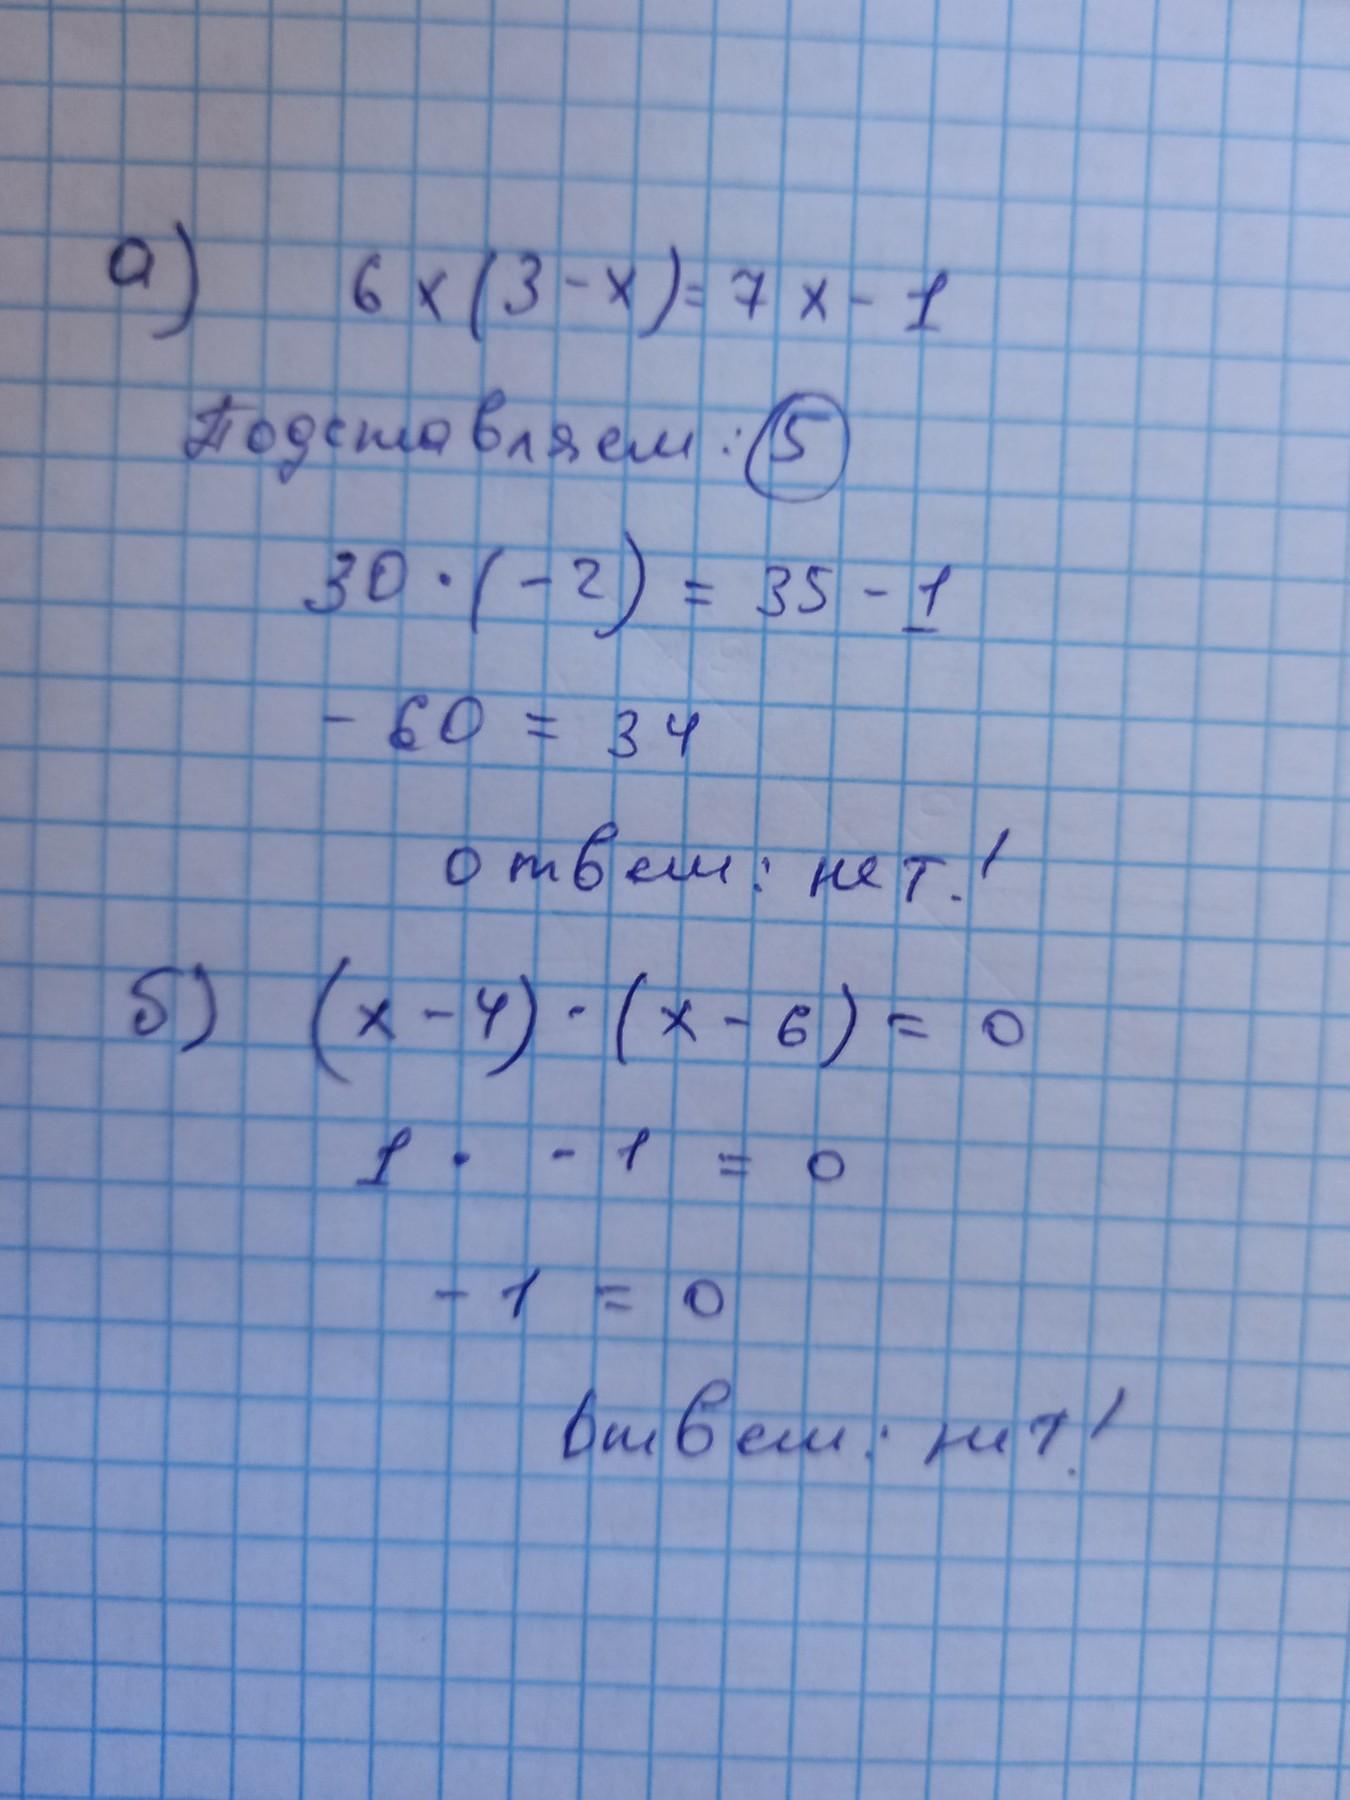 а) 6x(3-x)=7x-1
Подставляем: 5
30·(-2) = 35-1
-60 = 34
ответ: нет!
б) (x-4)·(x-6) = 0
1 · -1 = 0
-1 = 0
Ответ: нет!